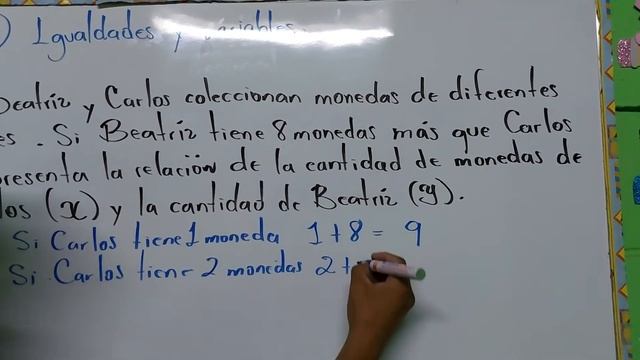 ) Igualdades y variables.
Beatríz y Carlos coleccionan monedas de diferentes
es. Si Beatríz tiene 8 monedas más que Carlos
resenta la relación de la cantidad de monedas de
los (x) y la cantidad de Beatríz (y).
Si Carlos tiene 1 moneda 1+8= 9
Si Carlos tiene 2 monedas 2+